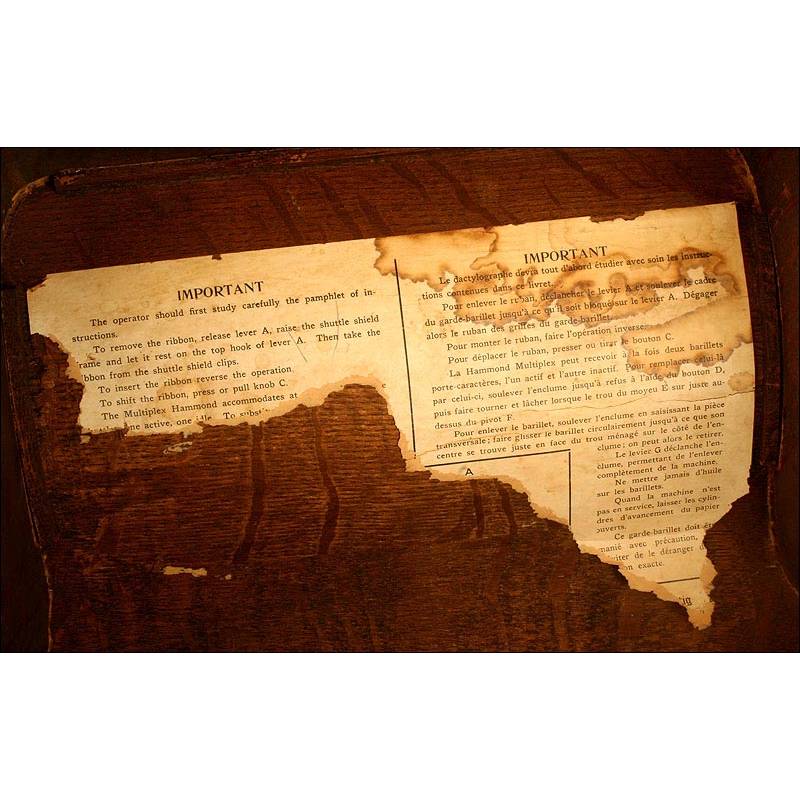 IMPORTANT
The operator should first study carefully the pamphlet of in-
structions.
To remove the ribbon, release lever A, raise the shuttle shield
rame and let it rest on the top hook of lever A. Then take the
bbon from the shuttle shield clips.
To insert the ribbon reverse the operation.
To shift the ribbon, press or pull knob C.
The Multiplex Hammond accommodates at
one active, one idle. To subst
IMPORTANT
Le dactylographe devra tout d'abord étudier avec soin les instruc-
tions contenues dans ce livret.
Pour enlever le ruban, déclancher le levier A et soulever le cadre
du garde-barillet jusqu'à ce qu'il soit bloqué sur le levier A. Dégager
alors le ruban des griffes du garde-barillet.
Pour monter le ruban, faire l'opération inverse.
Pour déplacer le ruban, presser ou tirer le bouton C.
La Hammond Multiplex peut recevoir à la fois deux barillets
porte-caractères, l'un actif et l'autre inactif. Pour remplacer celui-là
par celui-ci, soulever l'enclume jusqu'à refus à l'aide du bouton D,
puis faire tourner et lâcher lorsque le trou du moyeu E sur juste au-
dessus du pivot F.
Pour enlever le barillet, soulever l'enclume en saisissant la pièce
transversale; faire glisser le barillet circulairement jusqu'à ce que son
centre se trouve juste en face du trou ménagé sur le côté de l'en-
clume; on peut alors le retirer.
Le levier G déclanche l'en-
clume, permettant de l'enlever
complètement de la machine.
Ne mettre jamais d'huile
sur les barillets.
Quand la machine n'est
pas en service, laisser les cylin-
dres d'avancement du papier
ouverts.
Ce garde-barillet doit êt
manié avec précaution,
viter de le déranger d
on exacte.
A
ig